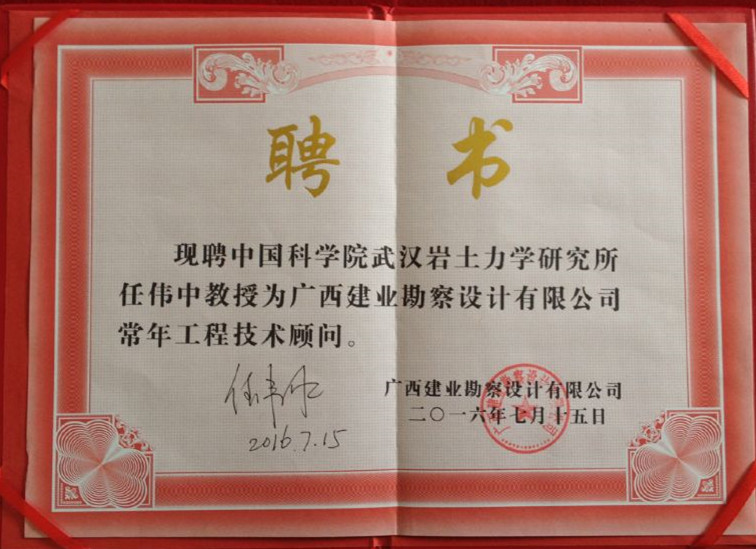 聘书
现聘中国科学院武汉岩土力学研究所
任伟中教授为广西建业勘察设计有限公司
常年工程技术顾问。
任伟中
广西建业勘察设计有限公司
2016.7.15
二〇一六年七月十五日